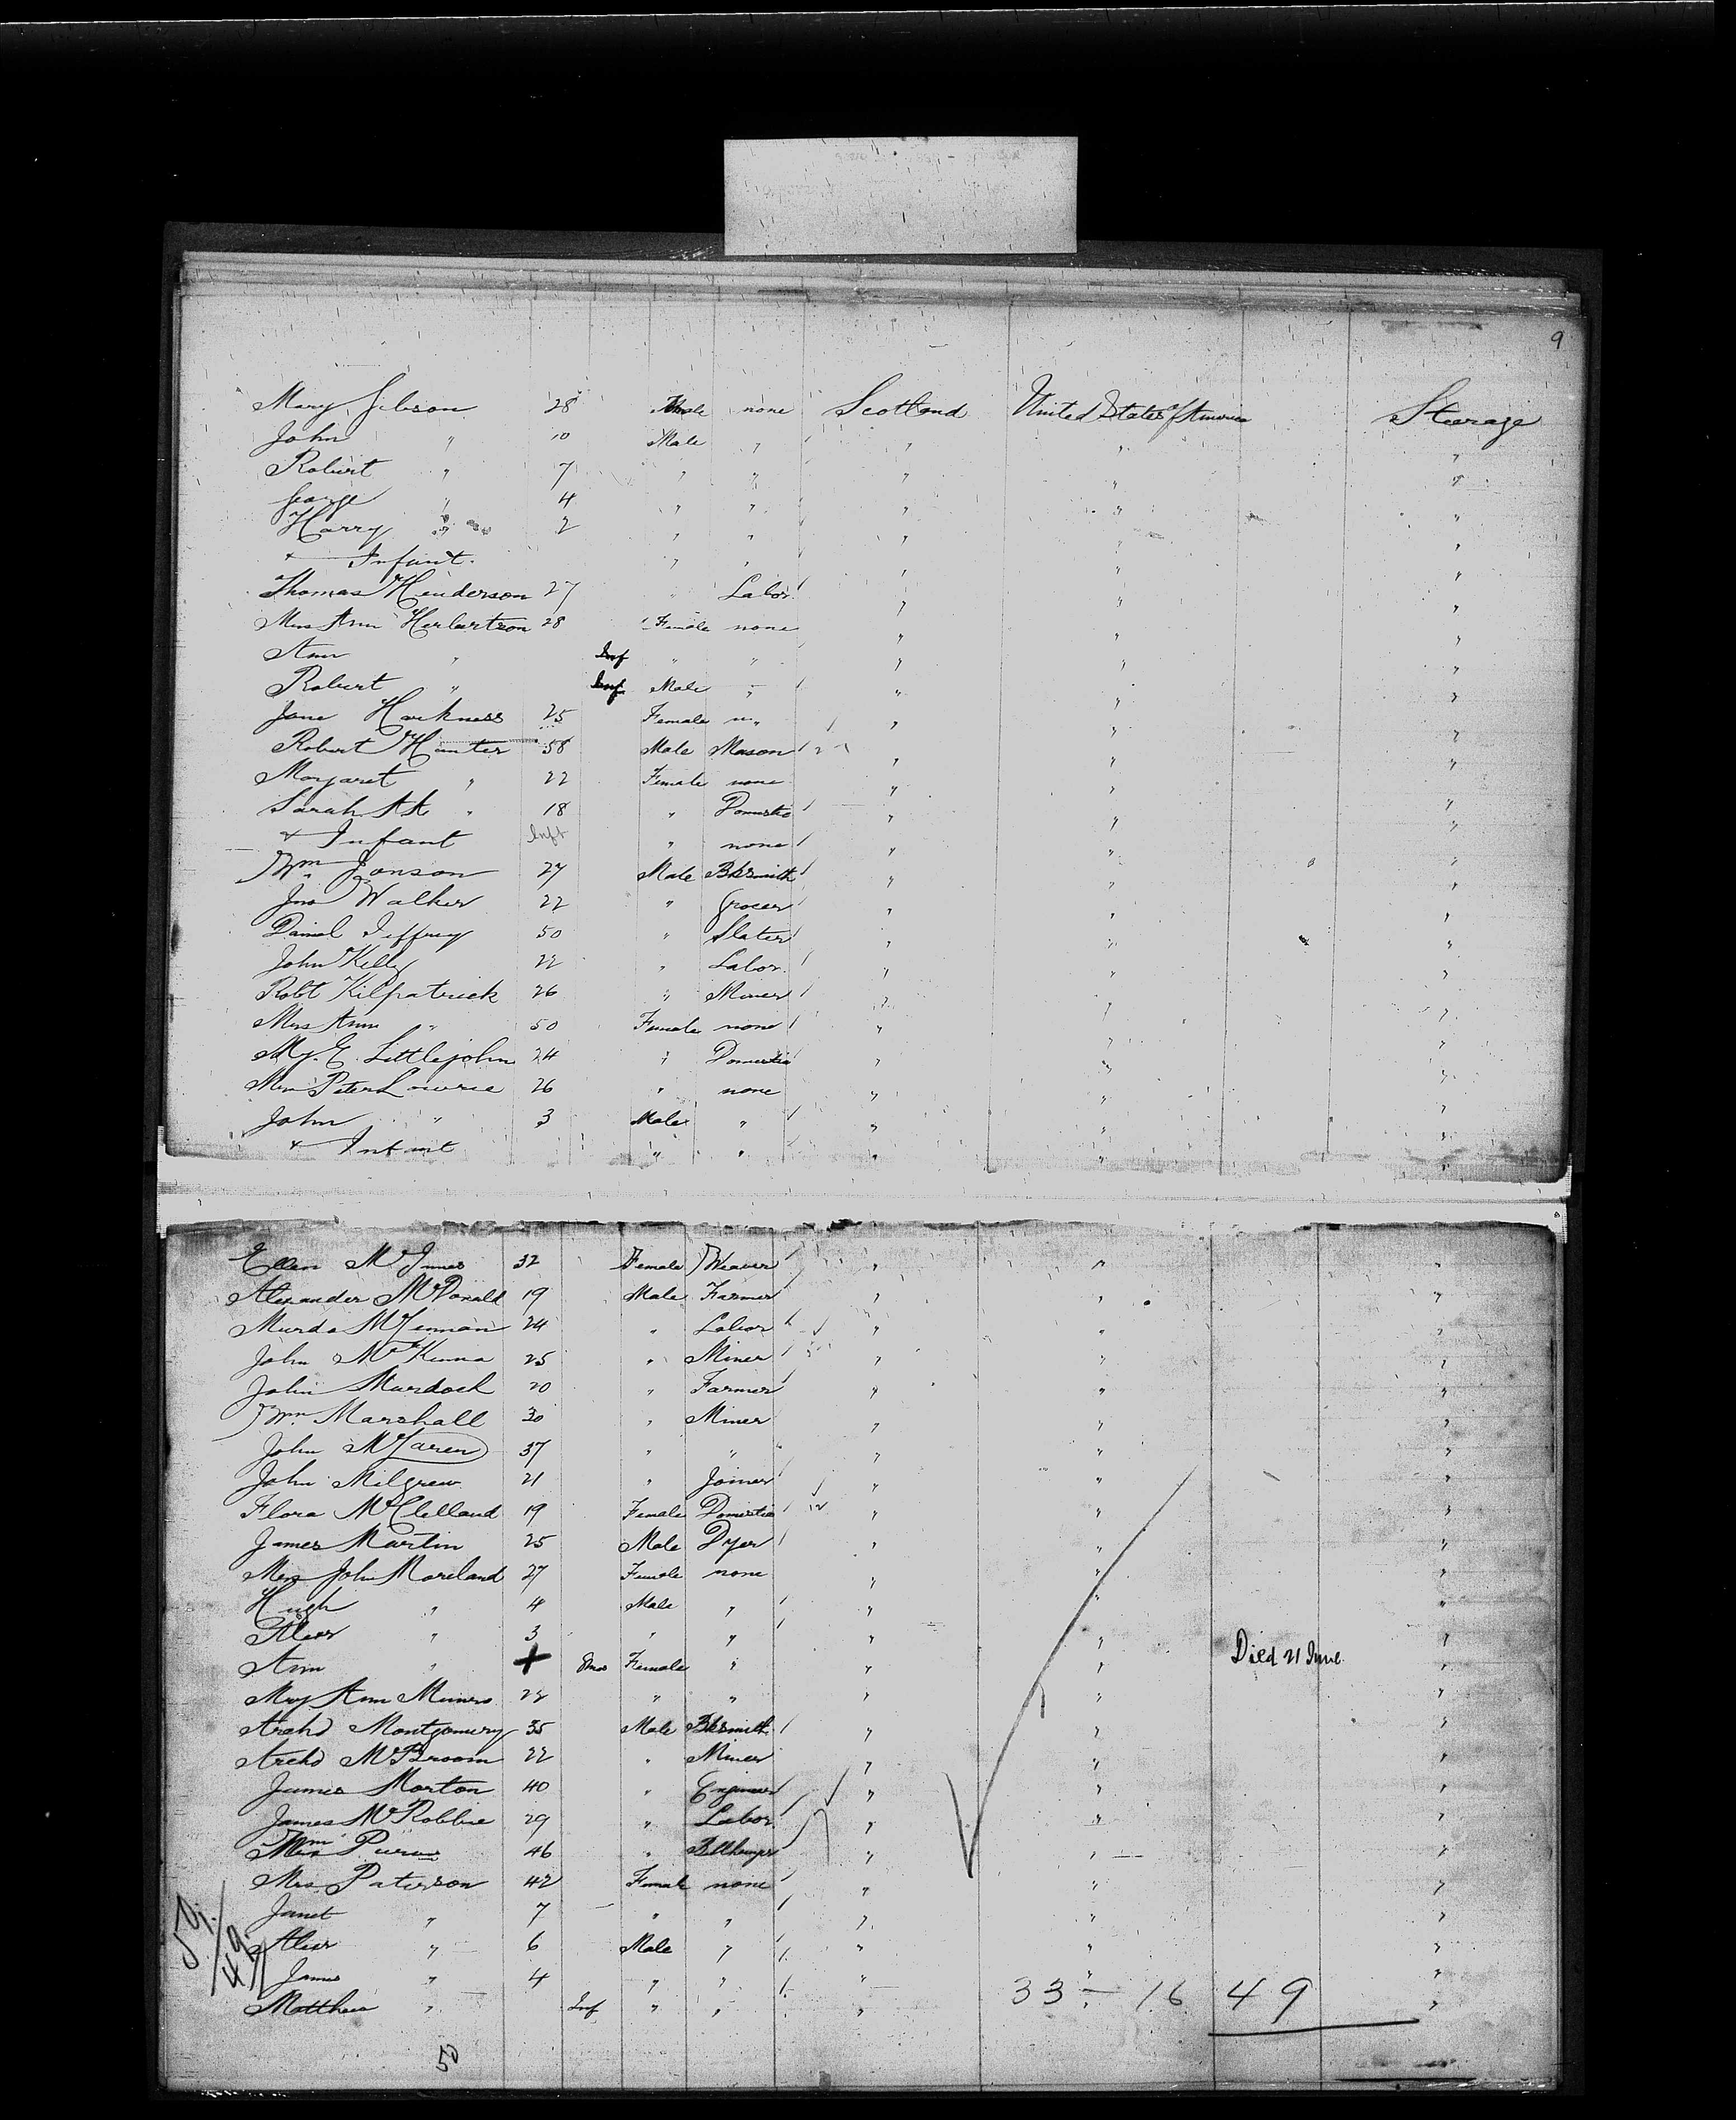 9
Mary Gibson 28 Male none Scotland United States of America Steerage
John " 10 Male " " " "
Robert " 7 " " " " "
George " 4 " " " " "
Harry " 2 " " " " "
+ Infant. " " " " "
Thomas Henderson 27 " Labor " " "
Mrs Ann Herbertson 28 Female none " " "
Ann " Inf " " " " "
Robert " Inf Male " " " "
Jane Harkness 25 Female " " " "
Robert Hunter 58 Male Mason " " "
Margaret " 22 Female none " " "
Sarah AA " 18 " Domestic " " "
+ Infant Inft " none " " "
Wm Jonson 27 Male Bksmith " " "
Jno Walker 22 " Grocer " " "
Daniel Jeffrey 50 " Slater " " "
John Kelly 22 " Labor. " " "
Robt Kilpatrick 26 " Miner " " "
Mrs Ann " 50 Female none " " "
My. E. Littlejohn 24 " Domestic " " "
Mrs Peter Lowrie 26 " none " " "
John " 3 Male " " " "
+ Infant " " " " "
Ellen McInnes 32 Female Weaver " " "
Alexander McDonald 19 Male Farmer " " "
Murdo McLennan 24 " Labor " " "
John McKenna 25 " Miner " " "
John Murdoch 20 " Farmer " " "
Wm. Marshall 30 " Miner " " "
John McLaren 37 " " " " "
John Milgrew 21 " Joiner " " "
Flora McClelland 19 Female Domestic " " "
James Martin 25 Male Dyer " " "
Mrs John Moreland 27 Female none " " "
Hugh " 4 Male " " " "
Alexr " 3 " " " " "
Ann " + 8mos Female " " " Died 21 June "
My Ann Munro 22 " " " " "
Archd Montgomery 35 Male Bksmith " " "
Archd McBroom 22 " Miner " " "
James Morton 40 " Engineer " " "
James McRobbie 29 " Labor. " " "
Wm 46 " " " "
Mrs Paterson 42 Female none " " "
Janet " 7 " " " " "
Alexr " 6 Male " " " "
James " 4 " " " " "
Matthew " Inf " " " " "
33 - 16 49
50
49
50